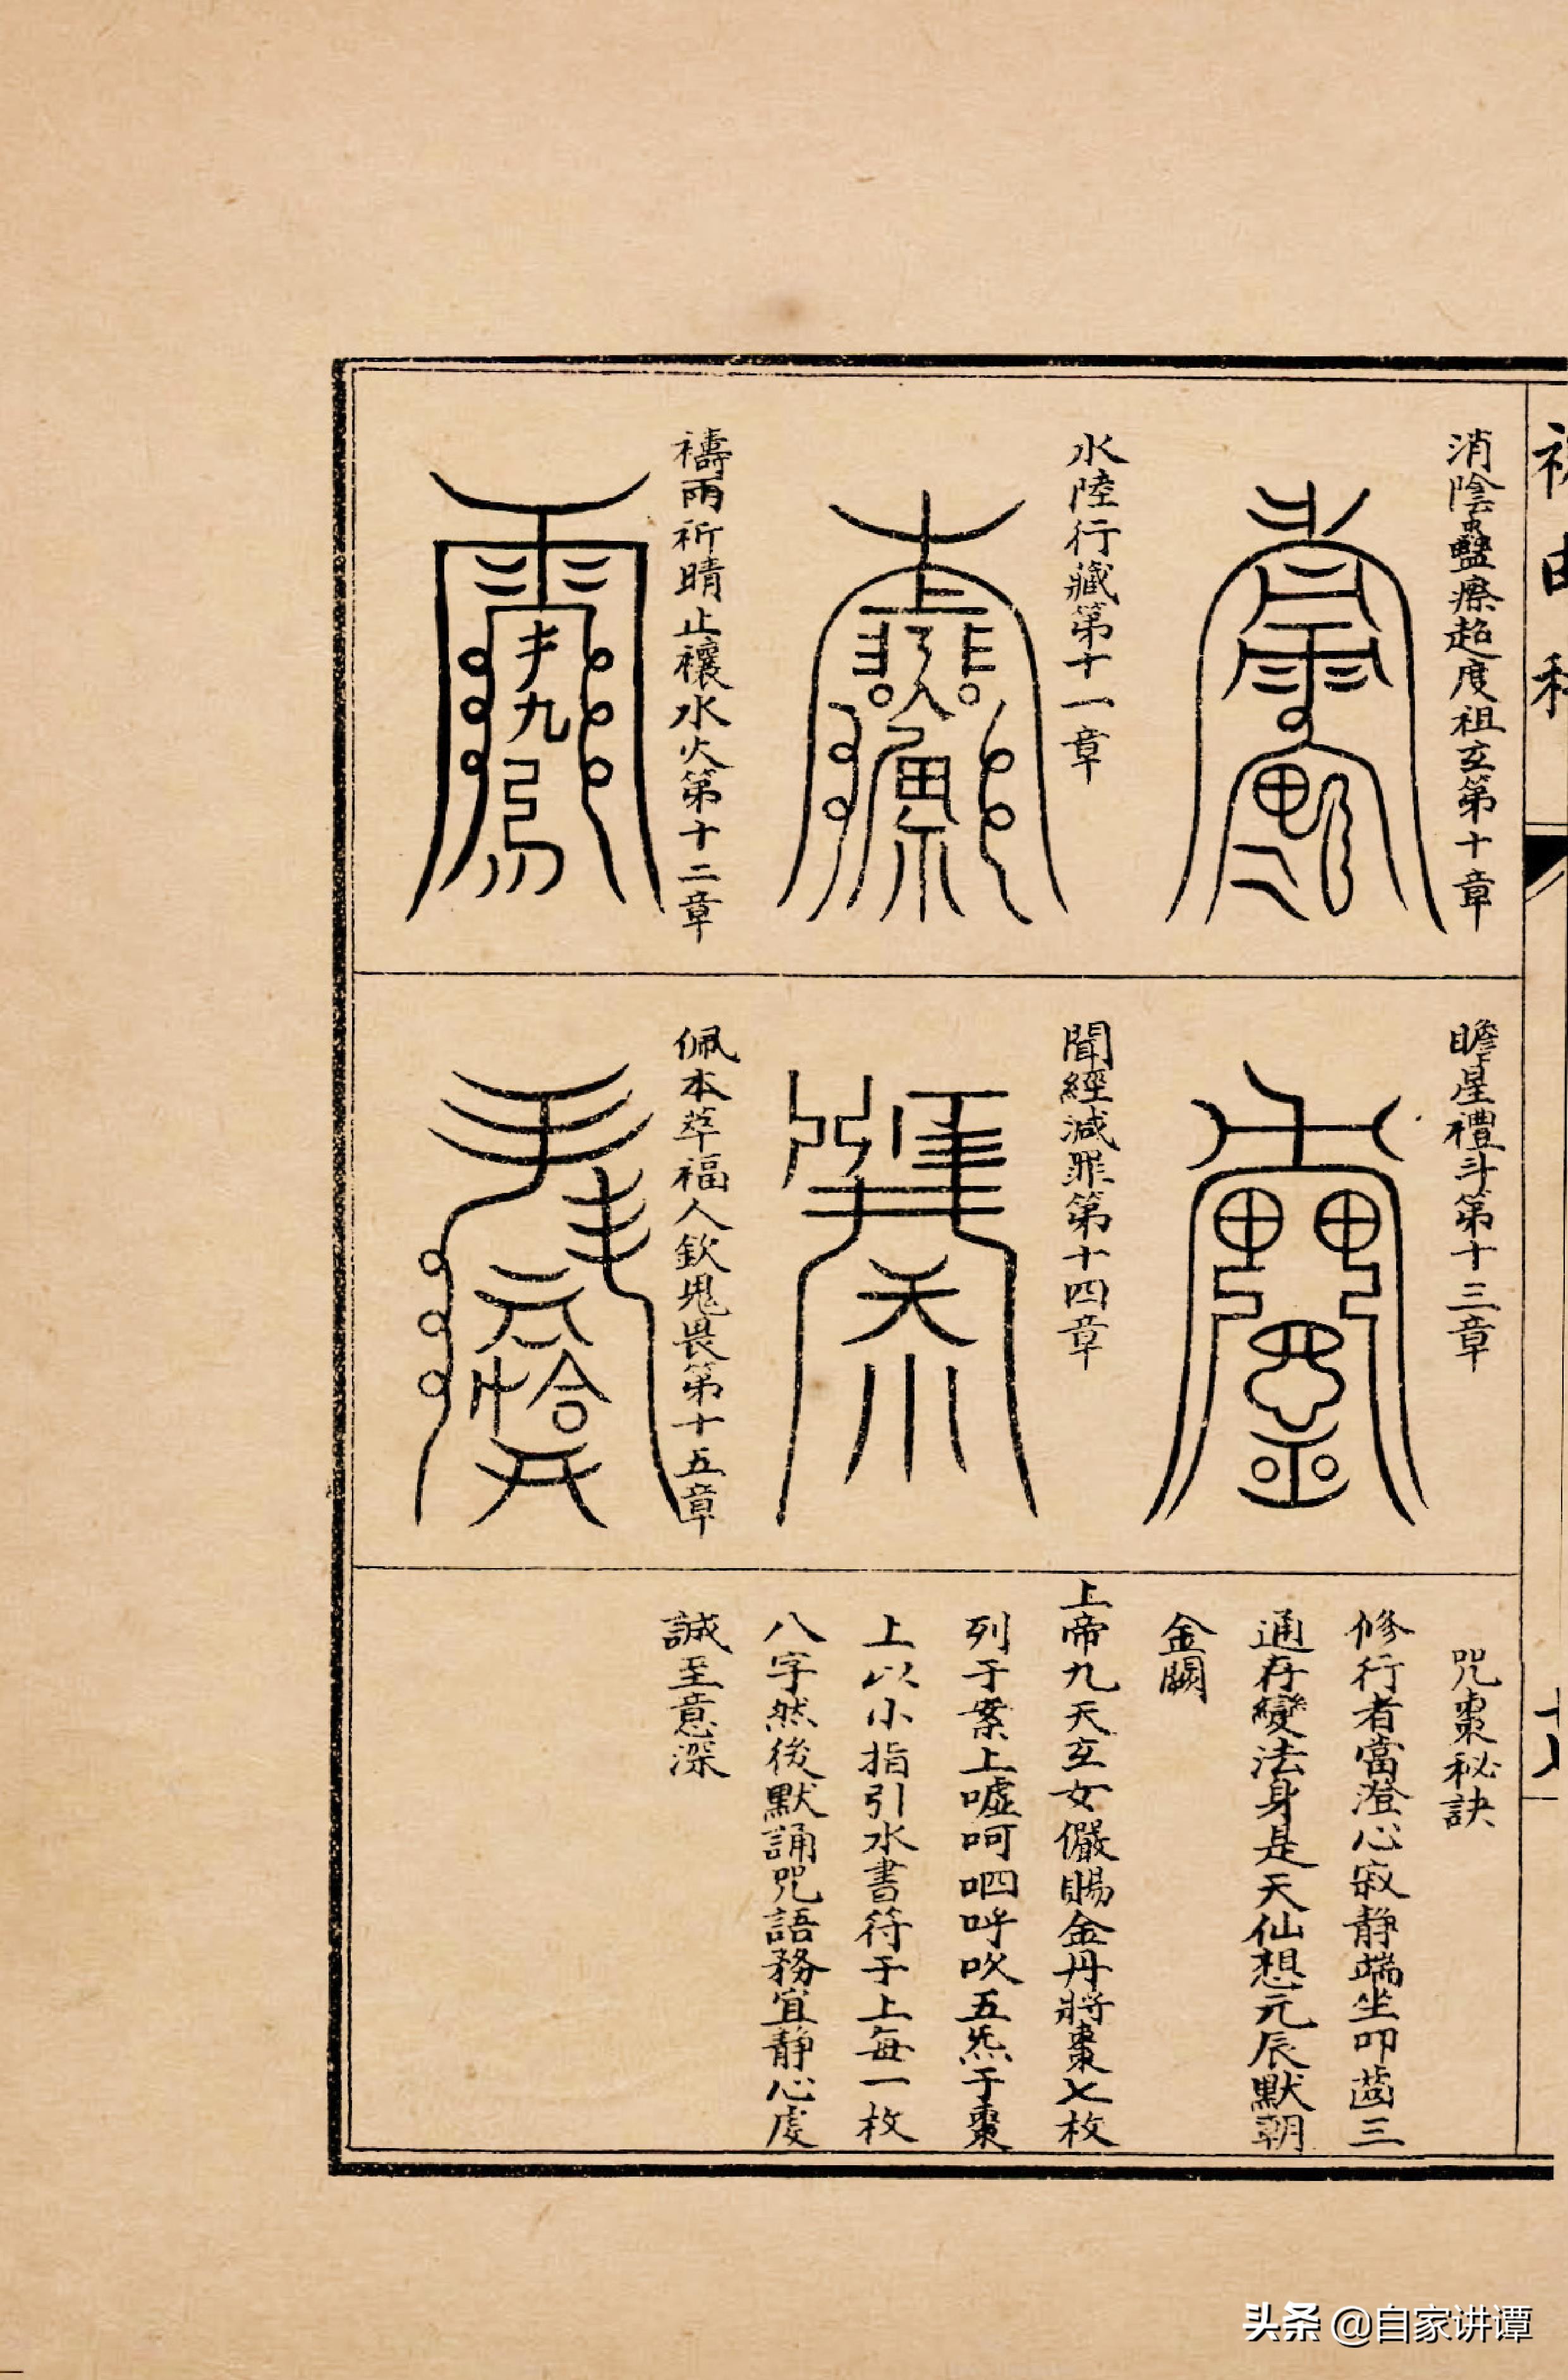 消陰蠱瘵超度祖玄第十章
水陸行藏第十一章
禱雨祈晴止禳水火第十二章
瞻星禮斗第十三章
聞經減罪第十四章
佩本萃福人欽鬼畏第十五章
咒棗秘訣
修行者當澄心寂静端坐叩齒三
通存變法身是天仙想元辰默朝
金闕
上帝九天玄女儼賜金丹將棗七枚
列于案上噓呵呬呼吹五炁于棗
上以小指引水書符于上每一枚
八字然後默誦咒語務宜静心虔
誠至意深
头条 @自家讲谭